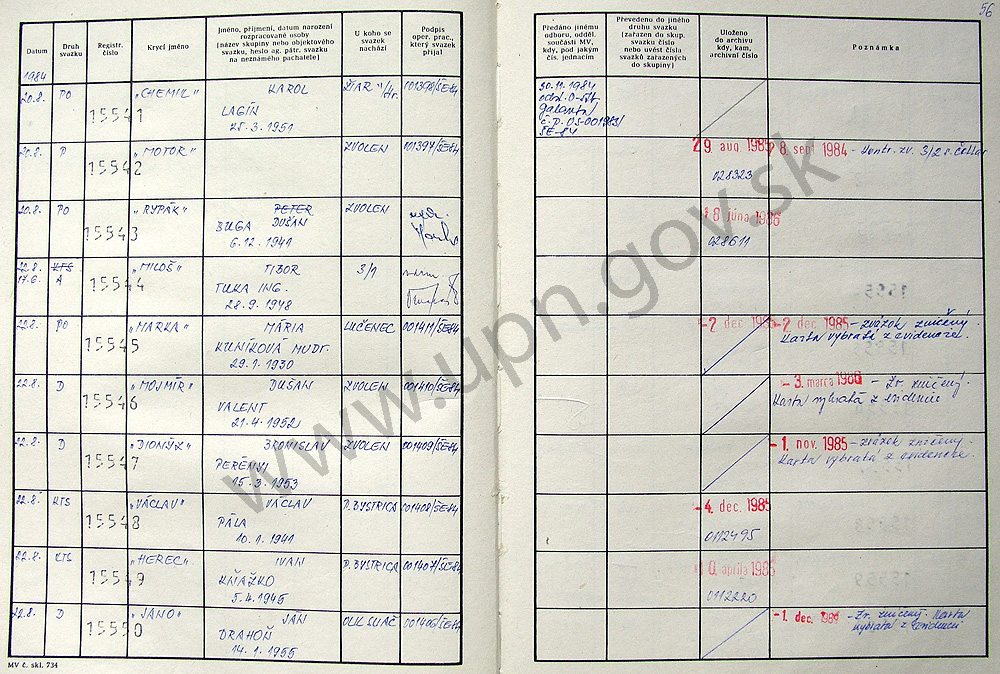 56
Datum
Druh svazku
Registr. číslo
Krycí jméno
Jméno, příjmení, datum narození
rozpracované osoby
(název skupiny nebo objektového
svazku, heslo ag. pátr. svazku
na neznámého pachatele)
U koho se
svazek
nachází
Podpis
oper. prac.,
který svazek
přijal
Předáno jinému
odboru, odděl.
součásti MV,
kdy, pod jakým
čís. jednacím
Převedeno do jiného
druhu svazku
(zařazen do skup.
svazku číslo
nebo uvést čísla
svazků zařazených
do skupiny)
Uloženo
do archivu
kdy, kam,
archivní číslo
Poznámka
1984
20.8. PO 15541 "CHEMIL" KAROL
LAGÍN
25.3.1951
ŽIAR n/Hr. 001398/ŠE-84
30.11.1984
Galanta
20.8. P 15542 "MOTOR" ZVOLEN 001397/ŠE-84
29 aug. 1985
028323
28 sept 1984
20.8. PO 15543 "RYPÁK" PETER
DUŠAN
BUGA
6.12.1941
ZVOLEN
8 júna 1986
028611
22.8. KTS
17.6. A
15544 "MILOŠ" TIBOR
TUKA ING.
28.9.1948
3/1
22.8. PO 15545 "MARKA" MÁRIA
KUNÍKOVÁ MUDr.
29.1.1930
LUČENEC 001411/ŠE-84
-2 dec 1985
-2 dec 1985 - zväzok zničený.
Karta vybratá z evidencie.
22.8. D 15546 "MOJMÍR" DUŠAN
VALENT
21.4.1952
ZVOLEN 001410/ŠE-84
-3. marca 1986 - Zv. zničený.
Karta vybratá z evidencie
22.8. D 15547 "DIONÝZ" BRONISLAV
PERÉNYI
15.3.1953
ZVOLEN 001409/ŠE-84
-1. nov. 1985 - zväzok zničený.
Karta vybratá z evidencie.
22.8. KTS 15548 "VÁCLAV" VÁCLAV
PÁLA
10.1.1941
P. BYSTRICA 001408/ŠE-84
-4. dec. 1985
0112495
22.8. KTS 15549 "HEREC" IVAN
KŇAŽKO
5.4.1945
P. BYSTRICA 001407/ŠE-84
0. apríla 1985
0112220
22.8. D 15550 "JANO" JÁN
DRAHOŇ
14.1.1955
001406/ŠE-84
-1. dec. 1986 - Zv. zničený. Karta
vybratá z evidencie
MV č. skl. 734
www.upn.gov.sk